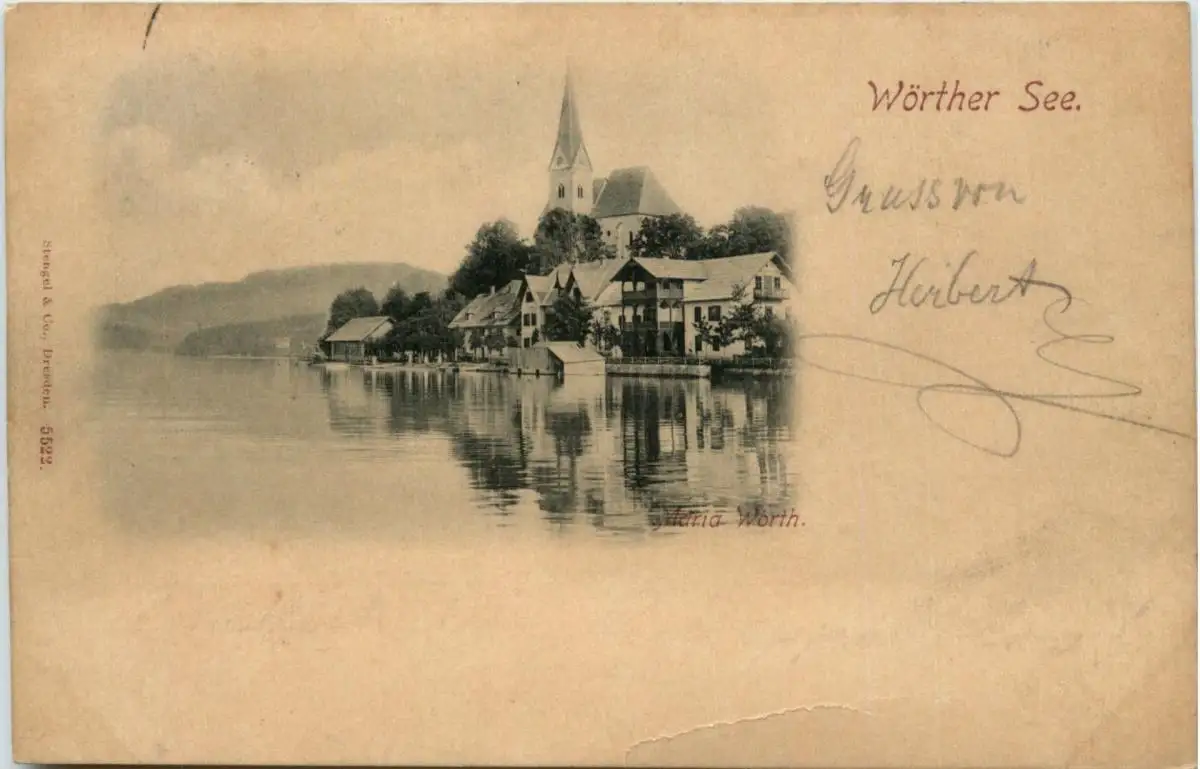 Wörther See.
Gruss von
Heribert
Maria Wörth.
Stengel & Co., Dresden. 5522.